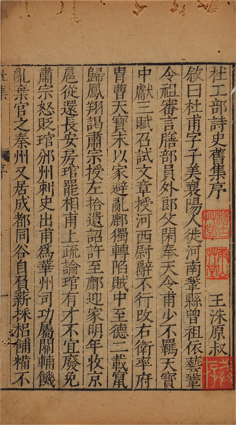 杜工部詩史舊集序
王洙原叔
敘曰杜甫字子美襄陽人徙河南鞏縣曾祖依藝鞏
令祖審言膳部員外郎父閑奉天令甫少不羈天寶
中獻三賦召試文章授河西尉辭不行改右衛率府
胄曹天寶末以家避亂鄜獨轉陷賊中至德二載竄
歸鳳翔謁肅宗授左拾遺詔許至鄜迎家明年收京
扈從還長安房琯罷相甫上疏論琯有才不宜廢免
肅宗怒貶琯邠州刺史出甫爲華州司功屬關輔饑
亂棄官之秦州又居成都同谷自負薪採梠餔糒不